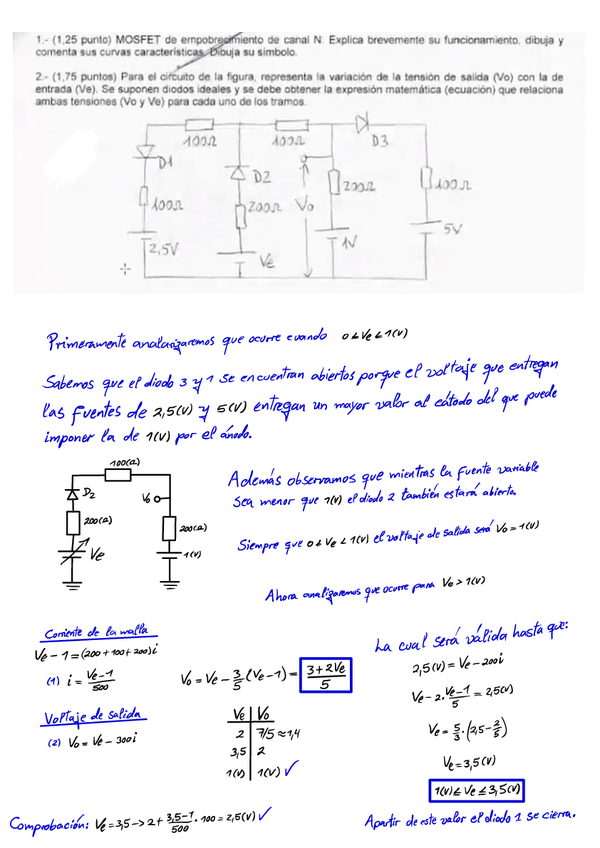 1.- (1,25 punto) MOSFET de empobrecimiento de canal N: Explica brevemente su funcionamiento, dibuja y
comenta sus curvas características. Dibuja su símbolo.
2.- (1,75 puntos) Para el circuito de la figura, representa la variación de la tensión de salida (Vo) con la de
entrada (Ve). Se suponen diodos ideales y se debe obtener la expresión matemática (ecuación) que relaciona
ambas tensiones (Vo y Ve) para cada uno de los tramos.
100Ω 100Ω D3
D1 D2
100Ω 200Ω Vo 200Ω 100Ω
2,5V Ve 1V 5V
Primeramente analarizaremos que ocurre cuando 0<Ve<1(V)
Sabemos que el diodo 3 y 1 se encuentran abiertos porque el voltaje que entregan
las fuentes de 2,5(V) y 5(V) entregan un mayor valor al cátodo del que puede
imponer la de 1(V) por el ánodo.
100(Ω)
D2 Vo
200(Ω) 200(Ω)
Ve 1(V)
Además observamos que mientras la fuente variable
sea menor que 1(V) el diodo 2 también estará abierto.
Siempre que 0<Ve<1(V) el voltaje de salida será Vo=1(V)
Ahora analizaremos que ocurre para Ve>1(V)
Corriente de la malla
Ve-1=(200+100+200)i
(1) i=Ve-1/500
Voltaje de salida
(2) Vo=Ve-300i
Vo=Ve-3/5(Ve-1)=3+2Ve/5
Ve Vo
2 7/5≈1,4
3,5 2
1(V) 1(V) ✓
La cual será válida hasta que:
2,5(V)=Ve-200i
Ve-2·Ve-1/5=2,5(V)
Ve=5/3·(2,5-2/5)
Ve=3,5(V)
1(V)≤Ve≤3,5(V)
Apartir de este valor el diodo 1 se cierra.
Comprobación: Ve=3,5->2+3,5-1/500·100=2,5(V) ✓